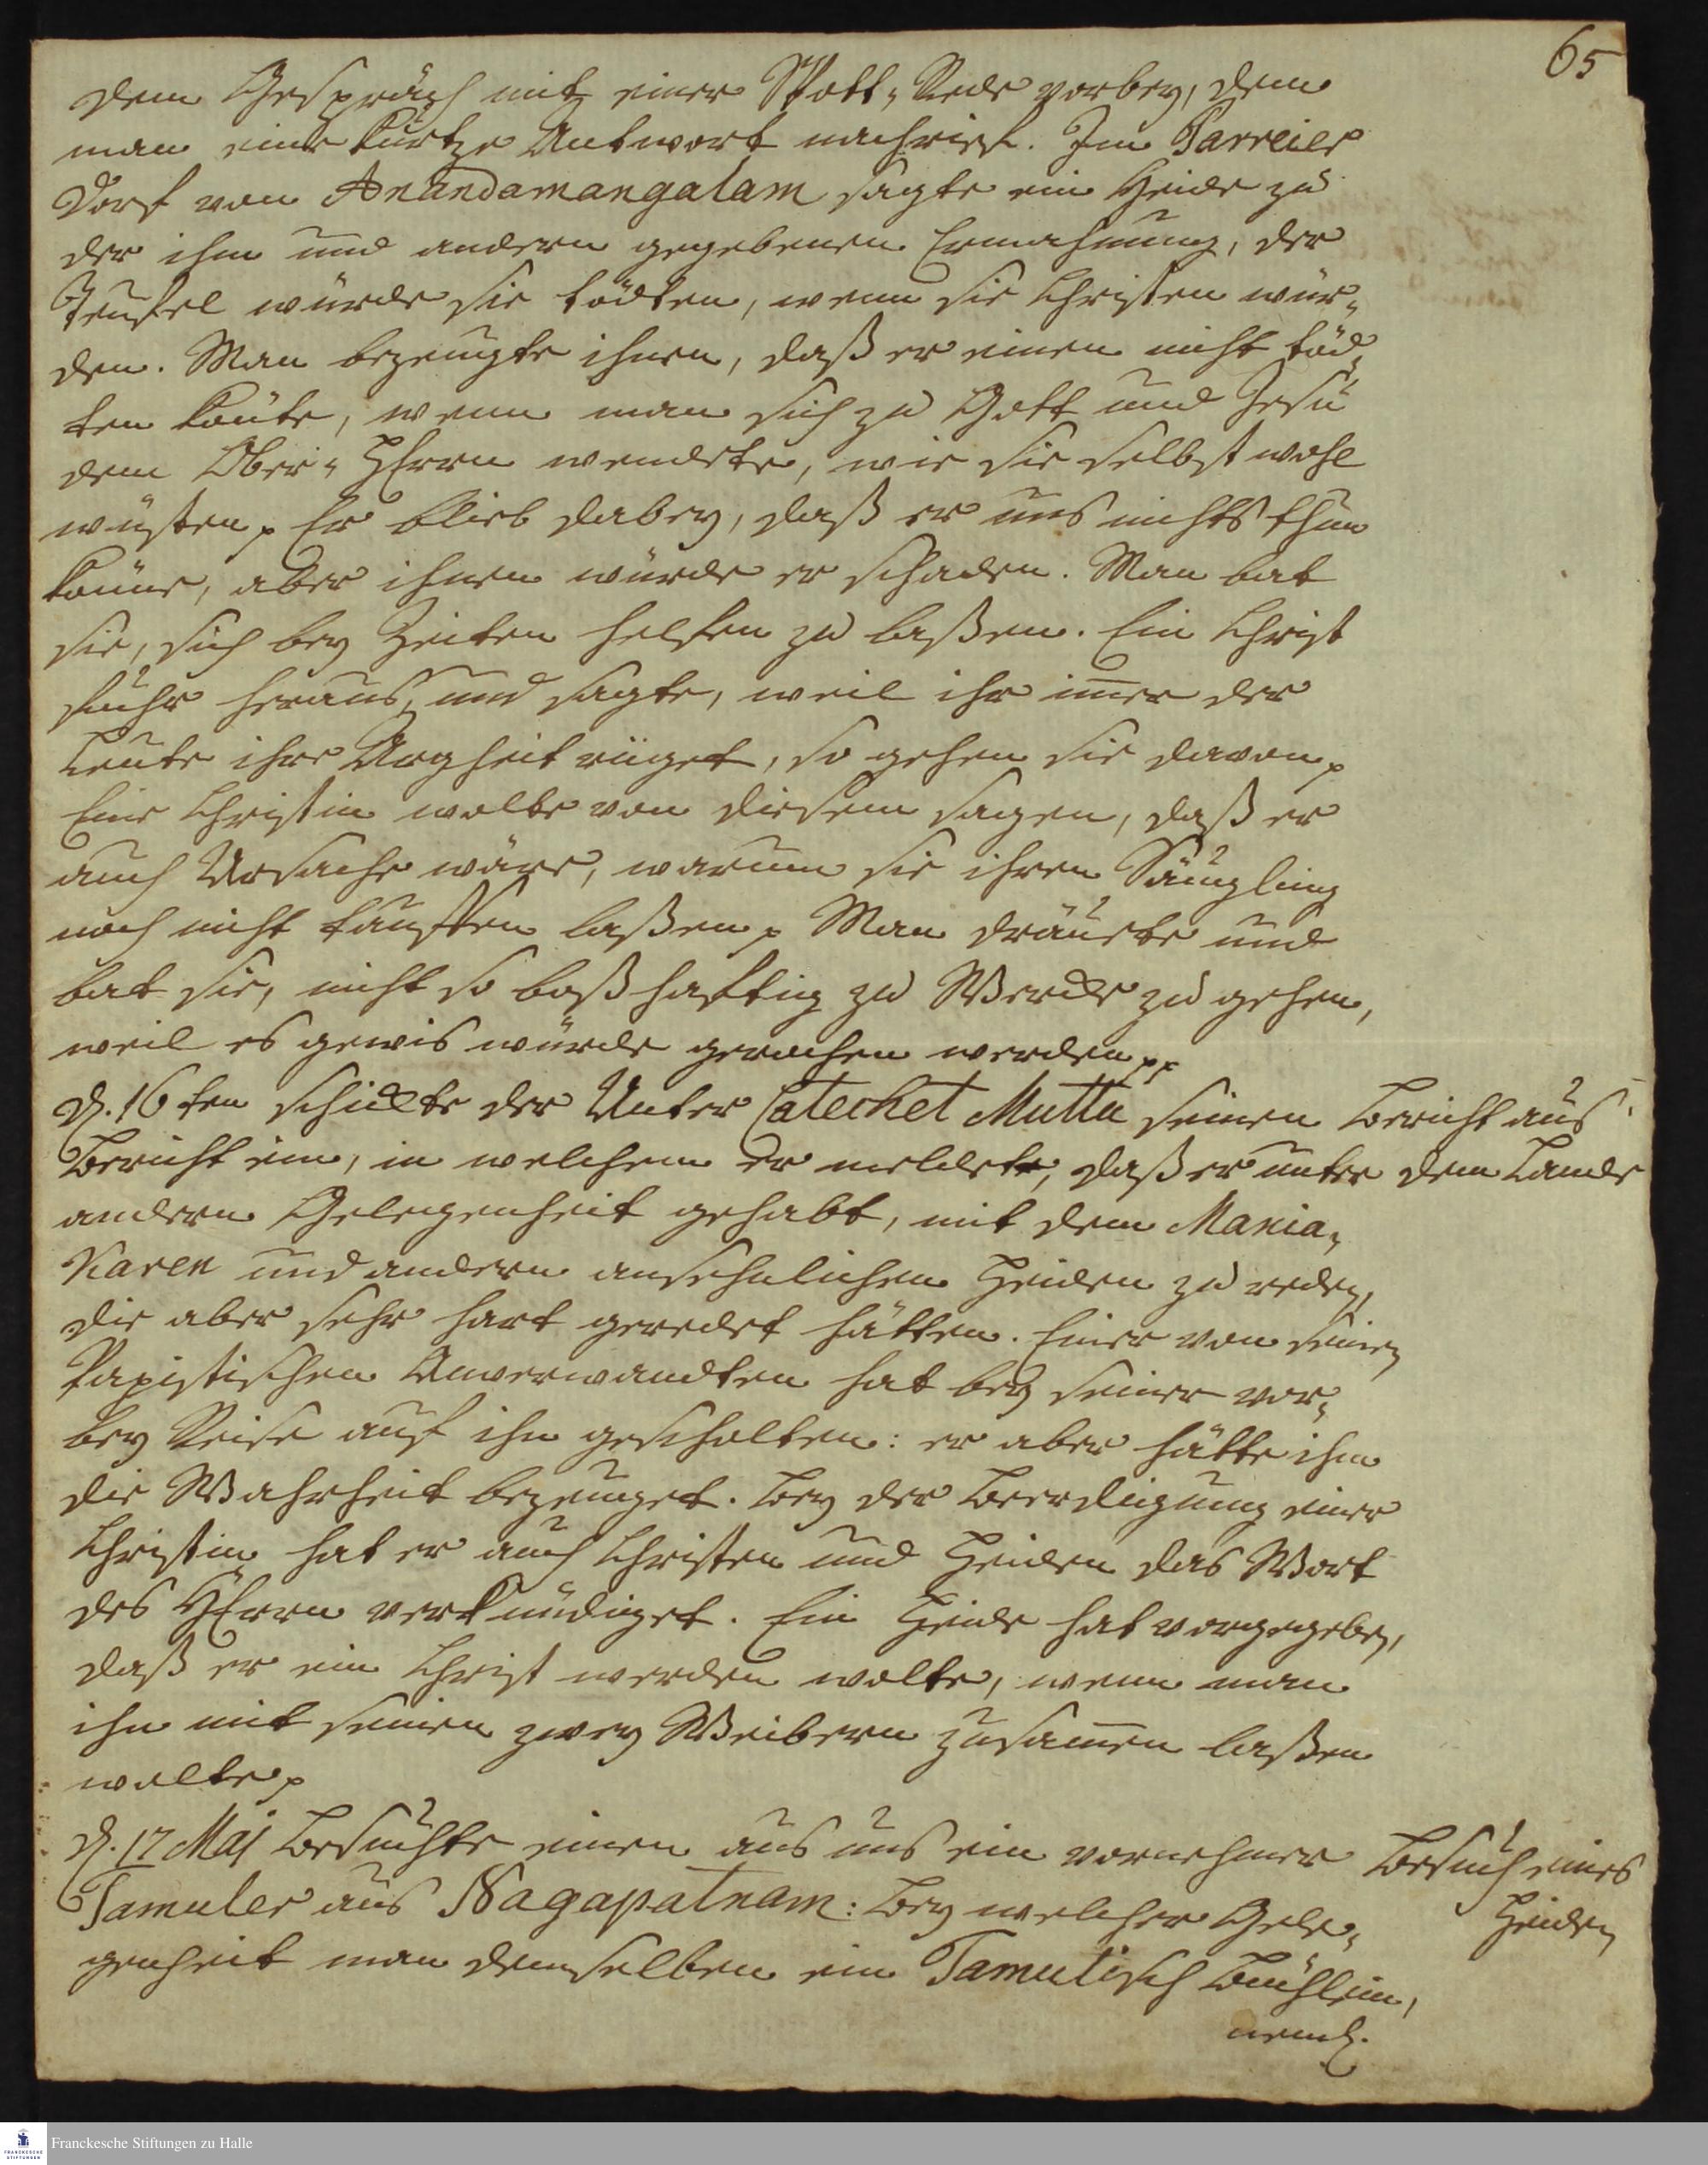 65
dem Gespräch mit einer Spott-Rede vorbey, dem
man eine kurtze Antwort nachrief. Im Parreier
Dorf von Anandamangalam sagte ein Heide zu
der ihm und andern gegebenen Ermahnung, der
Teufel würde sie tödten, wenn sie Christen wür-
den. Man bezeugte ihnen, daß er einen nicht töd-
ten könte, wenn man sich zu Gott und Jesu
dem Ober-HErrn wendete, wie sie selbst wohl
wüsten. Er blieb dabey, daß er uns nichts thun
könne, aber ihnen würde er schaden. Man bat
sie, sich bey Zeiten helfen zu laßen. Ein Christ
fuhr heraus, und sagte, weil ihr im̅er der
Leute ihre Argheit rüget, so gehen sie davon.
Eine Christin wolte von diesem sagen, daß er
auch Ursache wäre, warum sie ihren Säugling
noch nicht tauffen laßen. Man dräuete und
bat sie, nicht so boßhafftig zu Wercke zu gehen,
weil es gewis würde gerochen werden pp
D. 16ten schickte der Unter Catechet Muttu seinen
Bericht ein, in welchem er meldete, daß er unter
andern Gelegenheit gehabt, mit dem Mania-
karen und andern ansehnlichen Heiden zu reden,
die aber sehr hart geredet hätten. Einer von seinen
Papistischen Anverwandten hat bey seiner vor-
bey Reise auf ihn gescholten: er aber hätte ihm
die Wahrheit bezeuget. Bey der Beerdigung einer
Christin hat er auch Christen und Heiden das Wort
des HErrn verkündiget. Ein Heide hat vorgegeben,
daß er ein Christ werden wolte, wenn man
ihn mit seinen zwey Weibern zusam̅en laßen
wolte.
D. 17 Maj besuchte einen aus uns ein vornehmer
Tamuler aus Nagapatnam: bey welcher Gele-
genheit man demselben ein Tamulisch Büchlein,
neml.
Bericht aus
dem Lande
Besuch eines
Heiden
Franckesche Stiftungen zu Halle
FRANCKESCHE
STIFTUNGEN